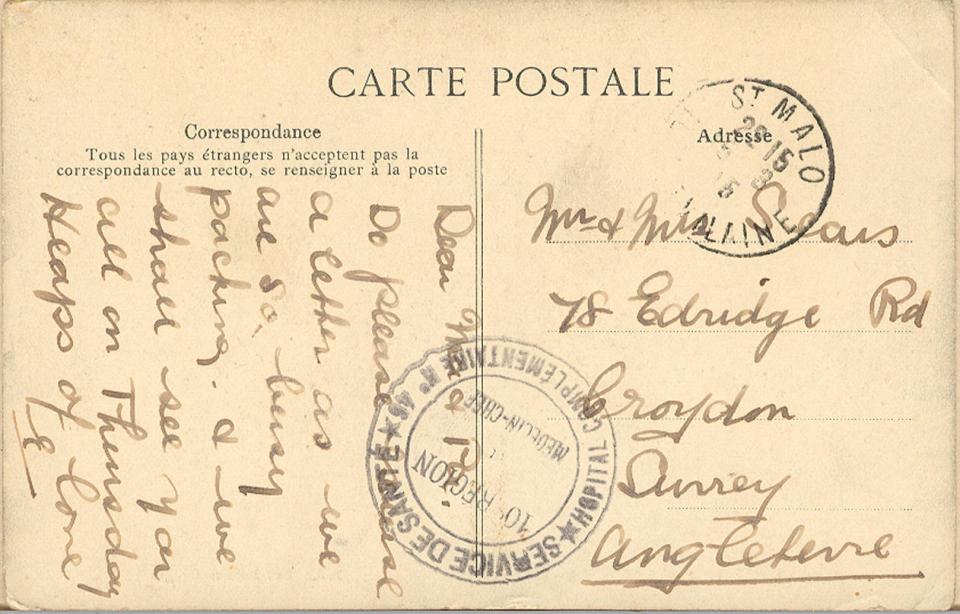 CARTE POSTALE
Correspondance
Tous les pays étrangers n'acceptent pas la
correspondance au recto, se renseigner à la poste
Dear M &
Do please excuse
a letter as we
are so, busy
packing. & we
shall see you
all on Thursday
Heaps of love
E
Adresse
Mr & Mrs Sears
78 Edridge Rd
Croydon
Surrey
Angleterre
ST MALO
15
SERVICE DE SANTÉ
HOPITAL COMPLÉMENTAIRE N° 46
MÉDECIN-CHEF
10e RÉGION